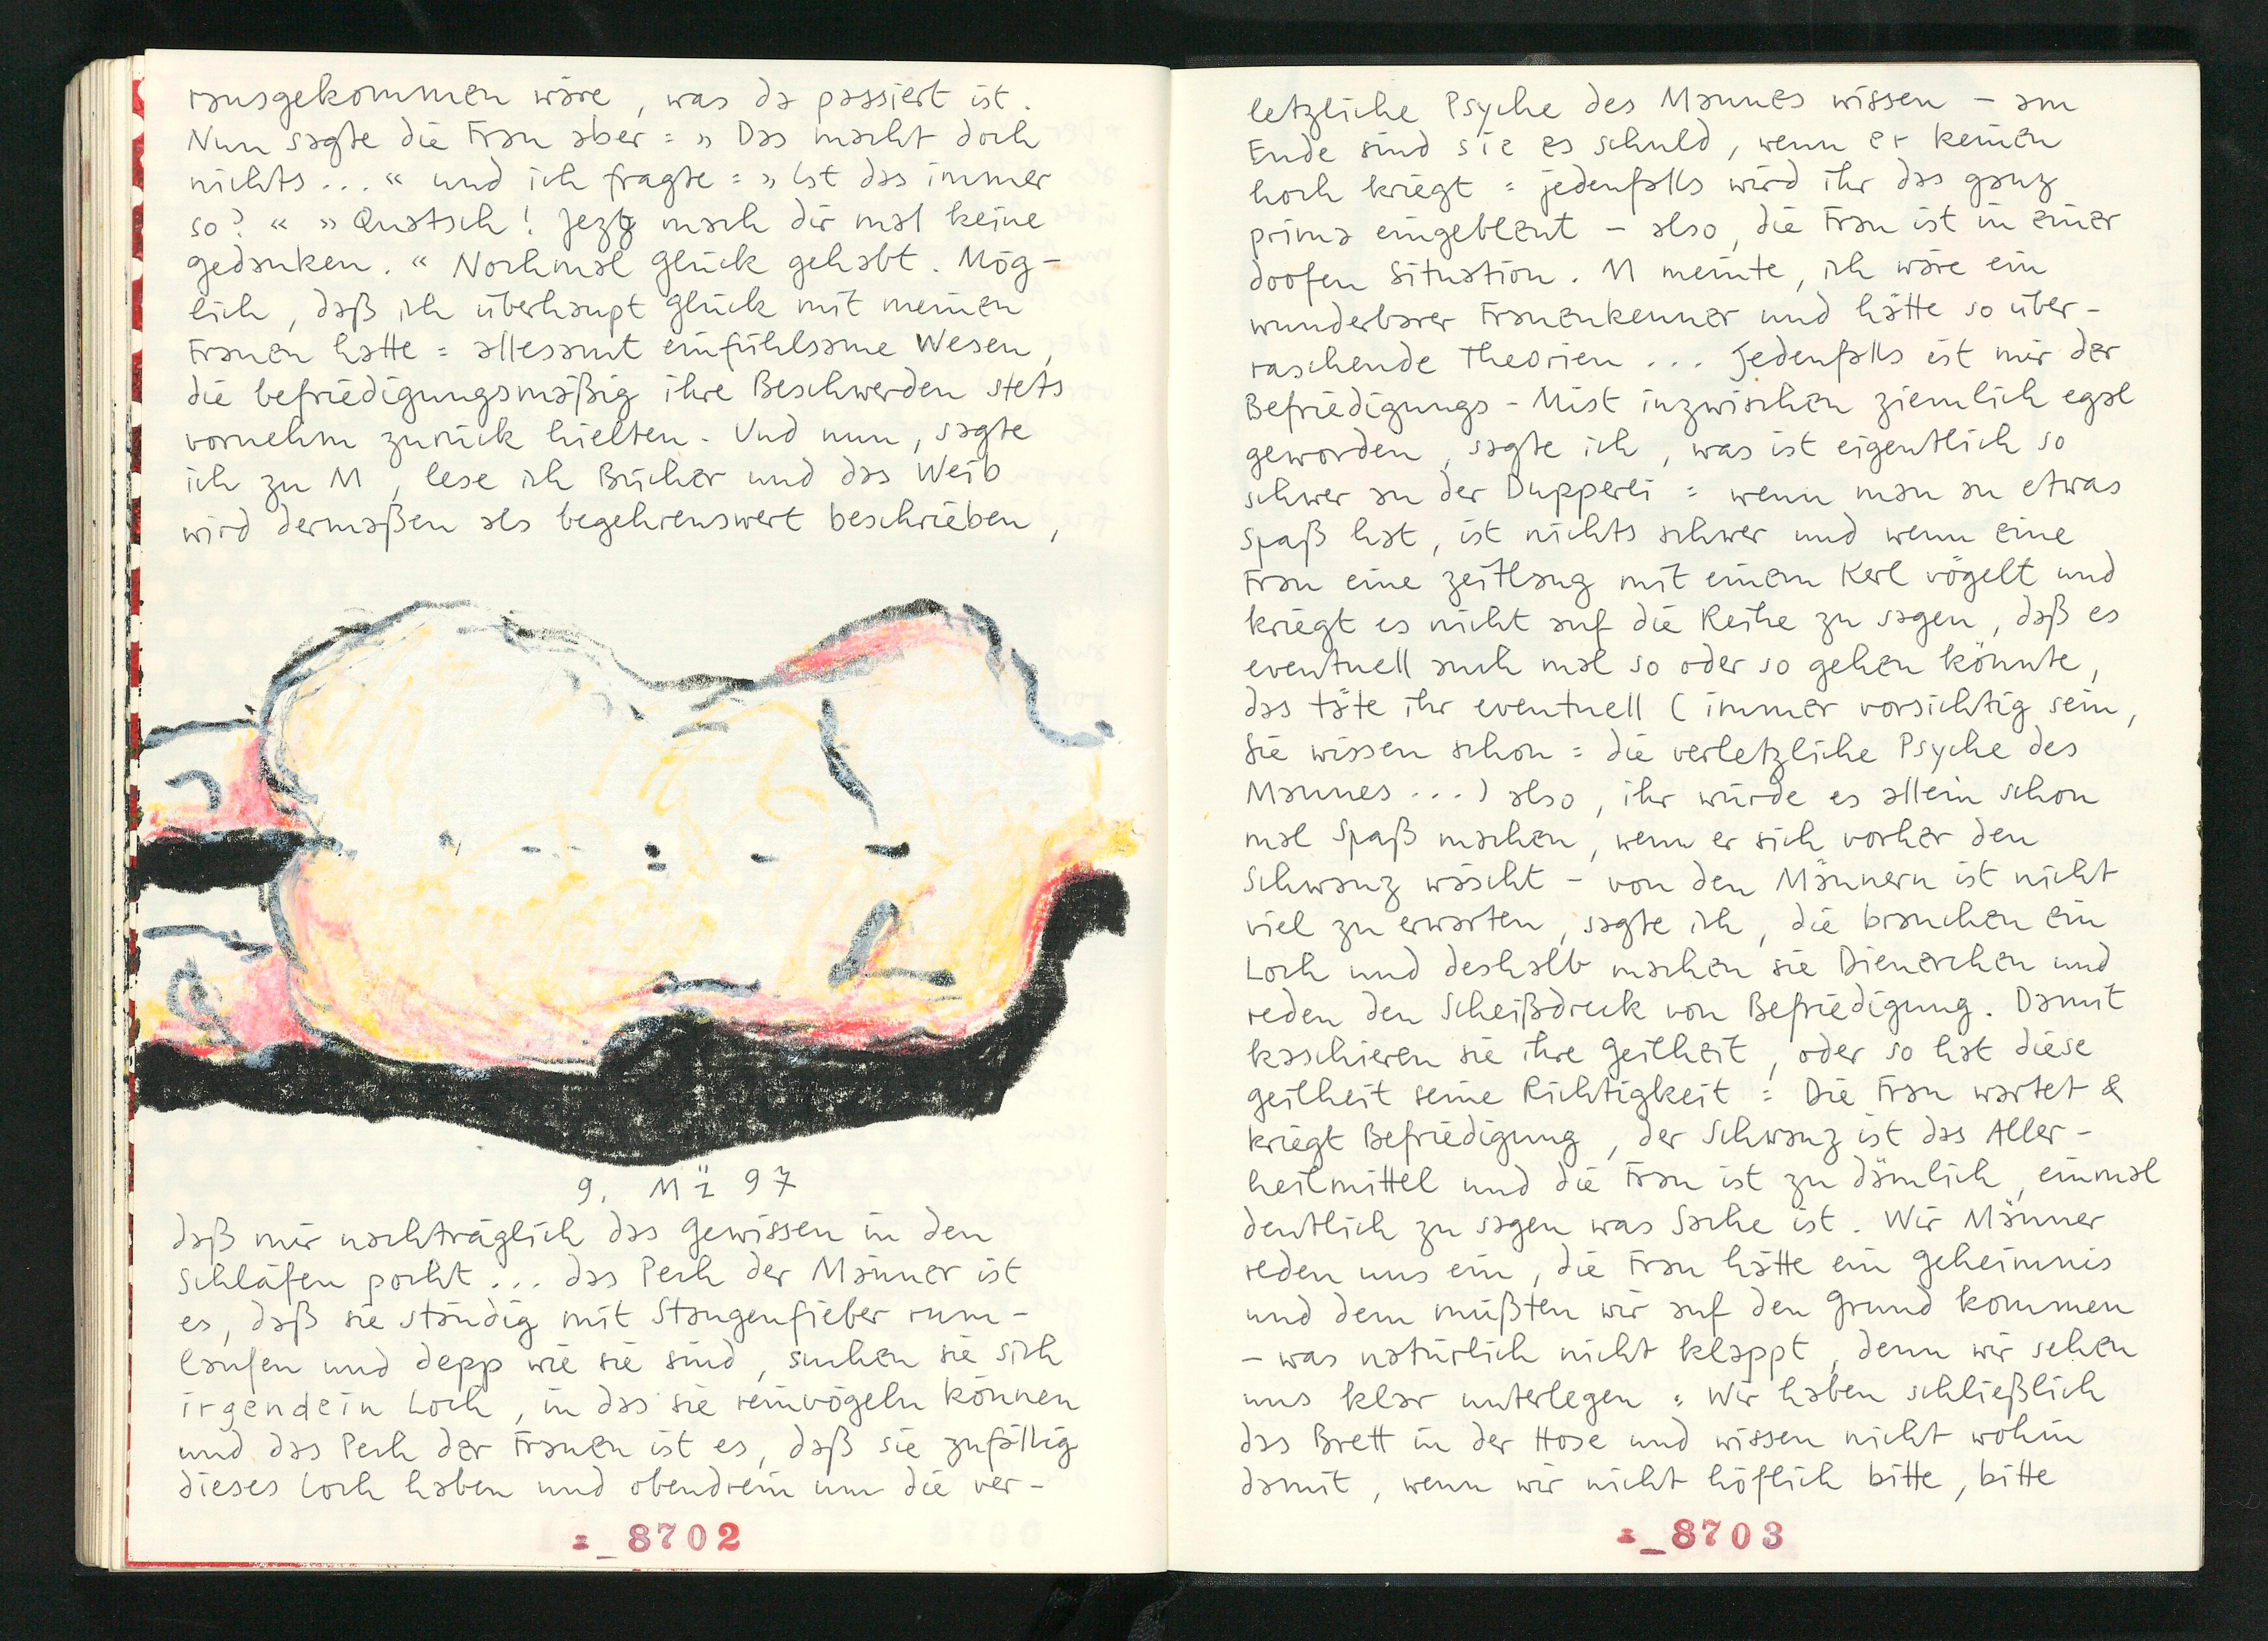 rausgekommen wäre, was da passiert ist.
Nun sagte die Frau aber = » Das macht doch
nichts ... « und ich fragte = » Ist das immer
so? « » Quatsch! Jezt mach dir mal keine
gedanken. « Nochmal glück gehabt. Mög-
lich, daß ich überhaupt glück mit meinen
Frauen hatte = allesamt einfühlsame Wesen,
die befriedigungsmäßig ihre Beschwerden stets
vornehm zurück hielten. Und nun, sagte
ich zu M, lese ich Bücher und das Weib
wird dermaßen als begehrenswert beschrieben,
9. Mä 97
daß mir nachträglich das gewissen in den
Schläfen pocht ... das Pech der Männer ist
es, daß sie ständig mit Stangenfieber rum-
laufen und depp wie sie sind, suchen sie sich
irgendein Loch, in das sie reinvögeln können
und das Pech der Frauen ist es, daß sie zufällig
dieses Loch haben und obendrein um die ver-
=_8702
letzliche Psyche des Mannes wissen – am
Ende sind sie es schuld, wenn er keinen
hoch kriegt = jedenfalls wird ihr das ganz
prima eingebleut – also, die Frau ist in einer
doofen Situation. M meinte, ich wäre ein
wunderbarer Frauenkenner und hätte so über-
raschende Theorien ... Jedenfalls ist mir der
Befriedigungs-Mist inzwischen ziemlich egal
geworden, sagte ich, was ist eigentlich so
schwer an der Dupperei = wenn man an etwas
Spaß hat, ist nichts schwer und wenn eine
Frau eine zeitlang mit einem Kerl vögelt und
kriegt es nicht auf die Reihe zu sagen, daß es
eventuell auch mal so oder so gehen könnte,
das täte ihr eventuell ( immer vorsichtig sein,
Sie wissen schon = die verletzliche Psyche des
Mannes ... ) also, ihr würde es allein schon
mal Spaß machen, wenn er sich vorher den
Schwanz wäscht – von den Männern ist nicht
viel zu erwarten, sagte ich, die brauchen ein
Loch und deshalb machen sie Dienerchen und
reden den Scheißdreck von Befriedigung. Damit
kaschieren sie ihre geilheit, oder so hat diese
geilheit seine Richtigkeit = Die Frau wartet &
kriegt Befriedigung, der Schwanz ist das Aller-
heilmittel und die Frau ist zu dämlich, einmal
deutlich zu sagen was Sache ist. Wir Männer
reden uns ein, die Frau hätte ein geheimnis
und dem müßten wir auf den grund kommen
– was natürlich nicht klappt, denn wir sehen
uns klar unterlegen = Wir haben schließlich
das Brett in der Hose und wissen nicht wohin
damit, wenn wir nicht höflich bitte, bitte
=_8703